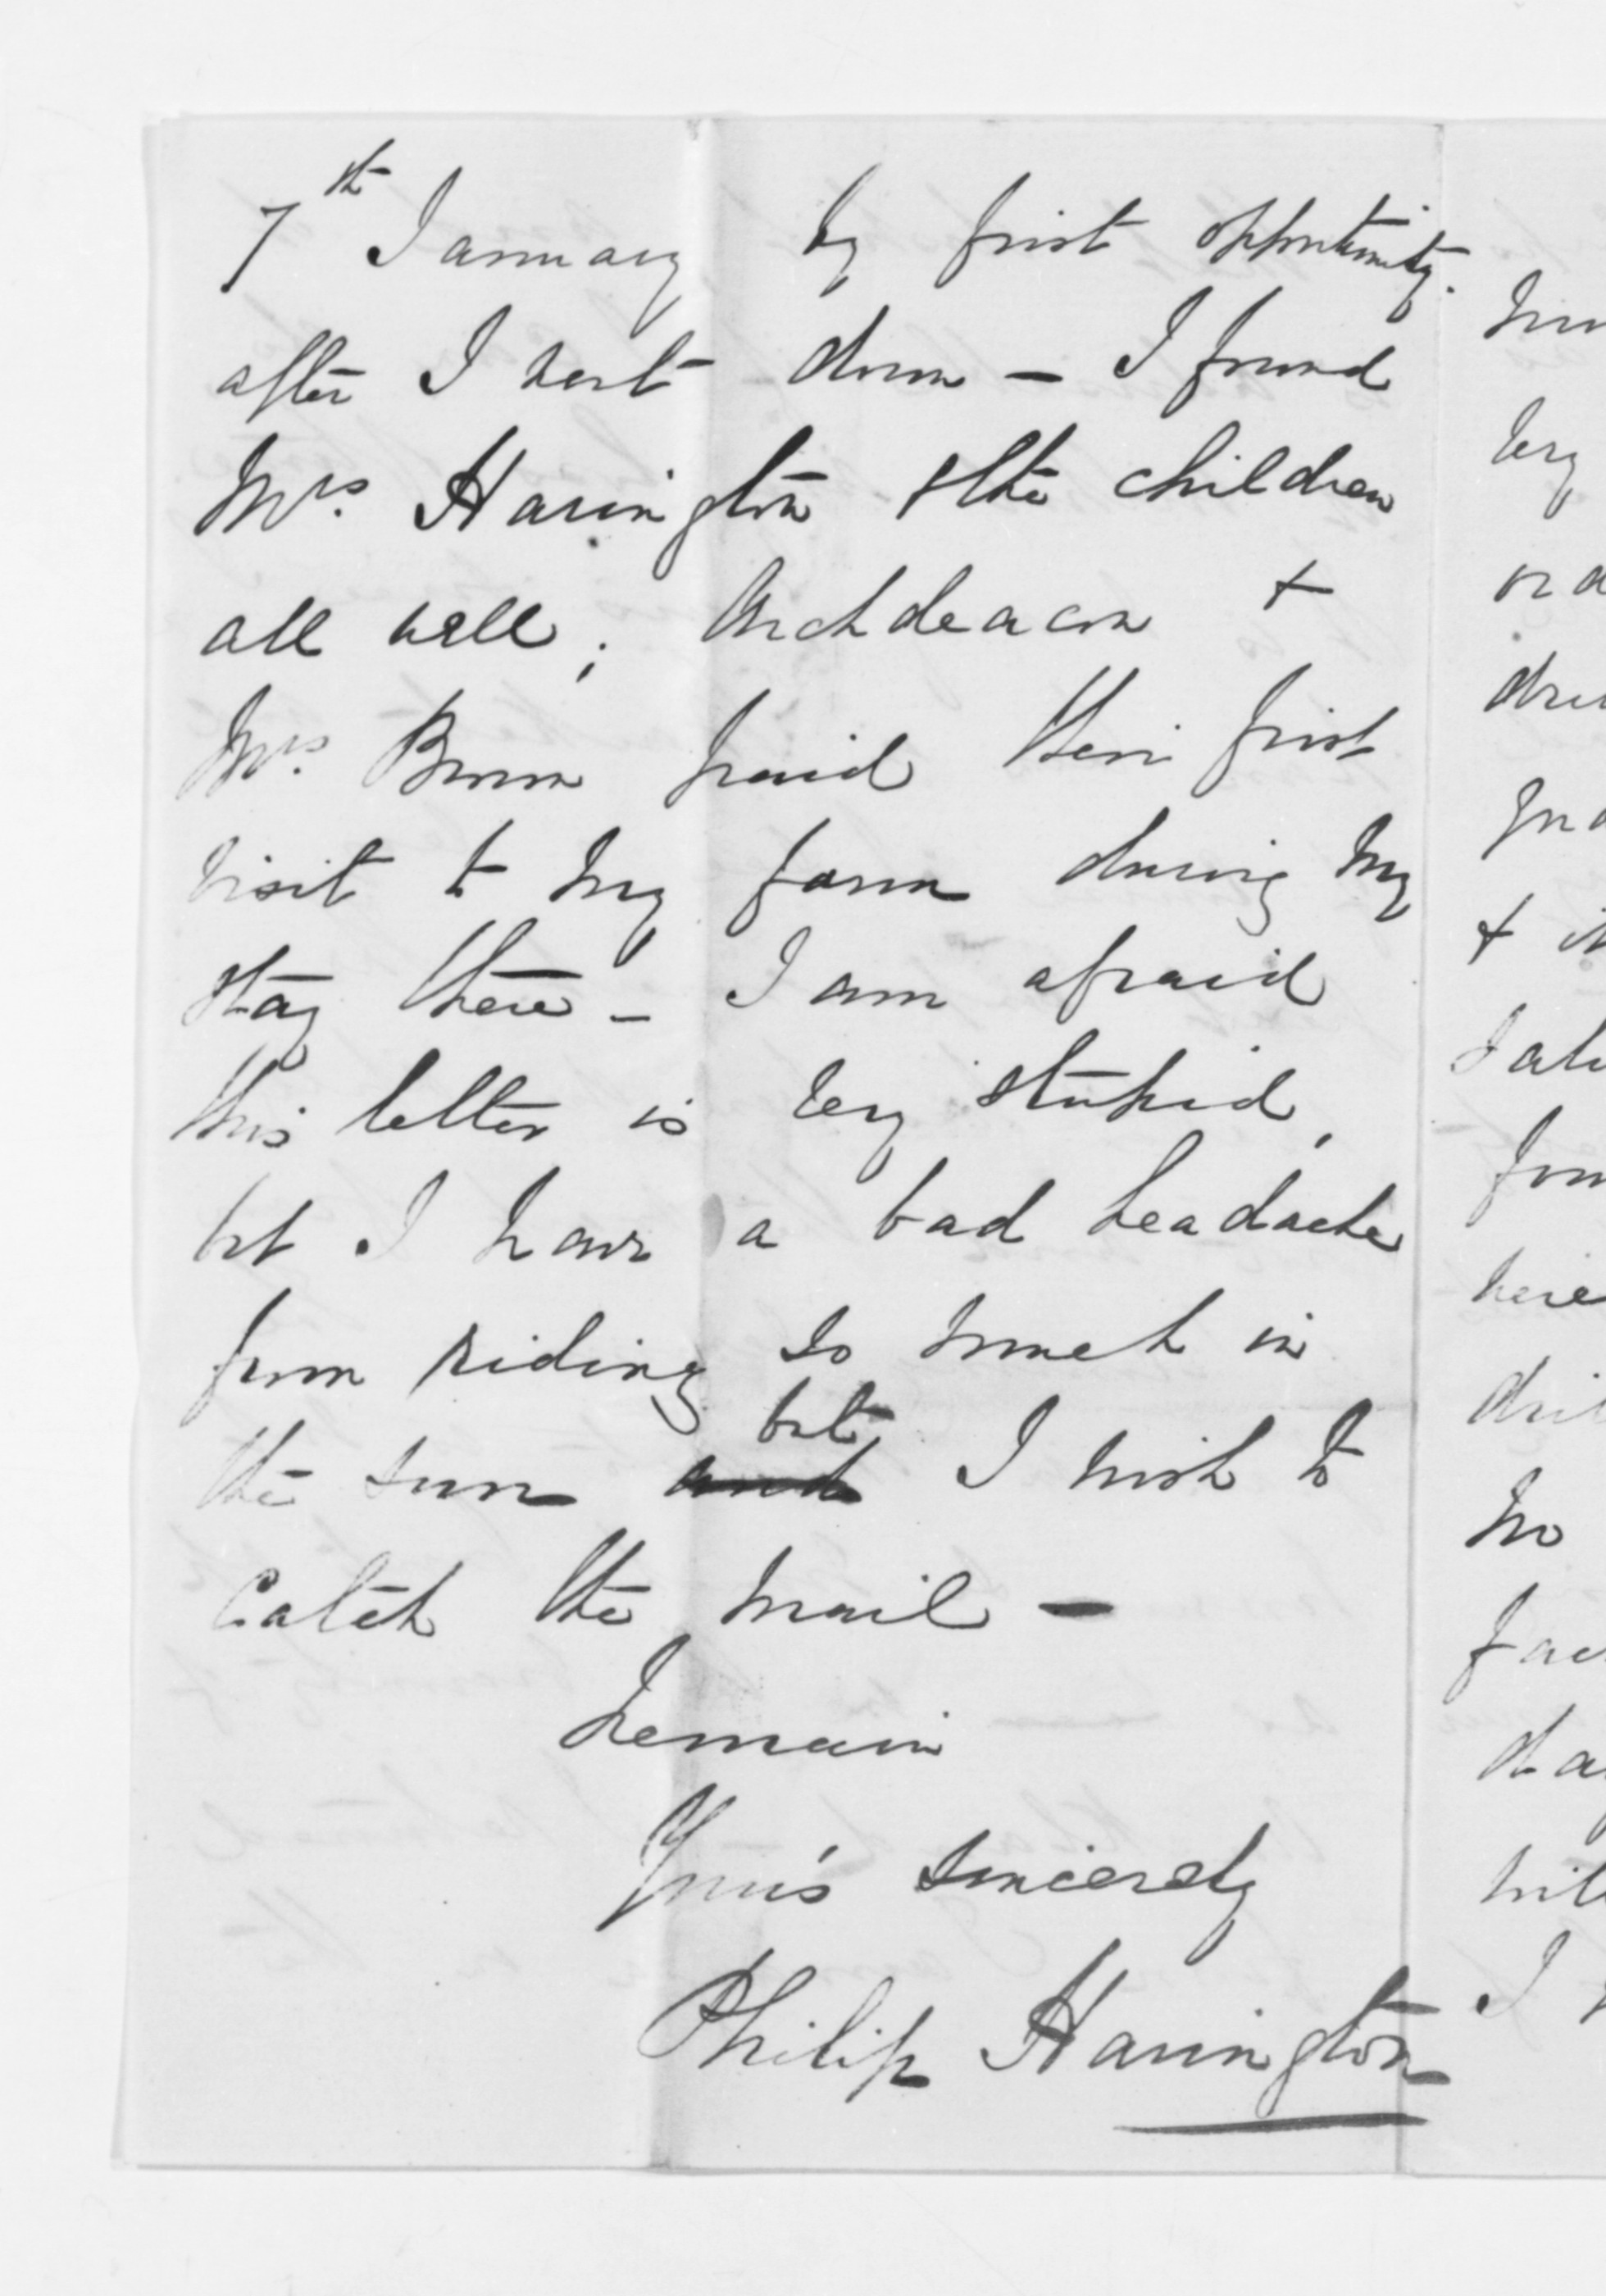 7th January by first opportunity.
after I went down — I found
Mrs. Harington & the children
all well; Archdeacon &
Mrs. Brown paid their first
visit to my farm during my
stay there — I am afraid
this letter is very stupid,
but I have a bad headache
from riding so much in
but
the sun and I wish to
Catch the mail —
Remain
Your's sincerely
Philip Harington
very
&
here
no
I